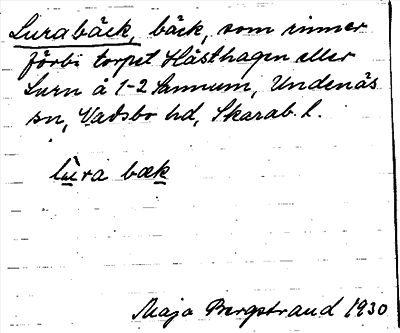 Lurabäck, bäck, som rinner
förbi torpet Hästhagen eller
Lurn å 1-2 Sannum, Undenäs
sn, Vadsbo hd, Skarab. l.
lùra bæk
Maja Bergstrand 1930